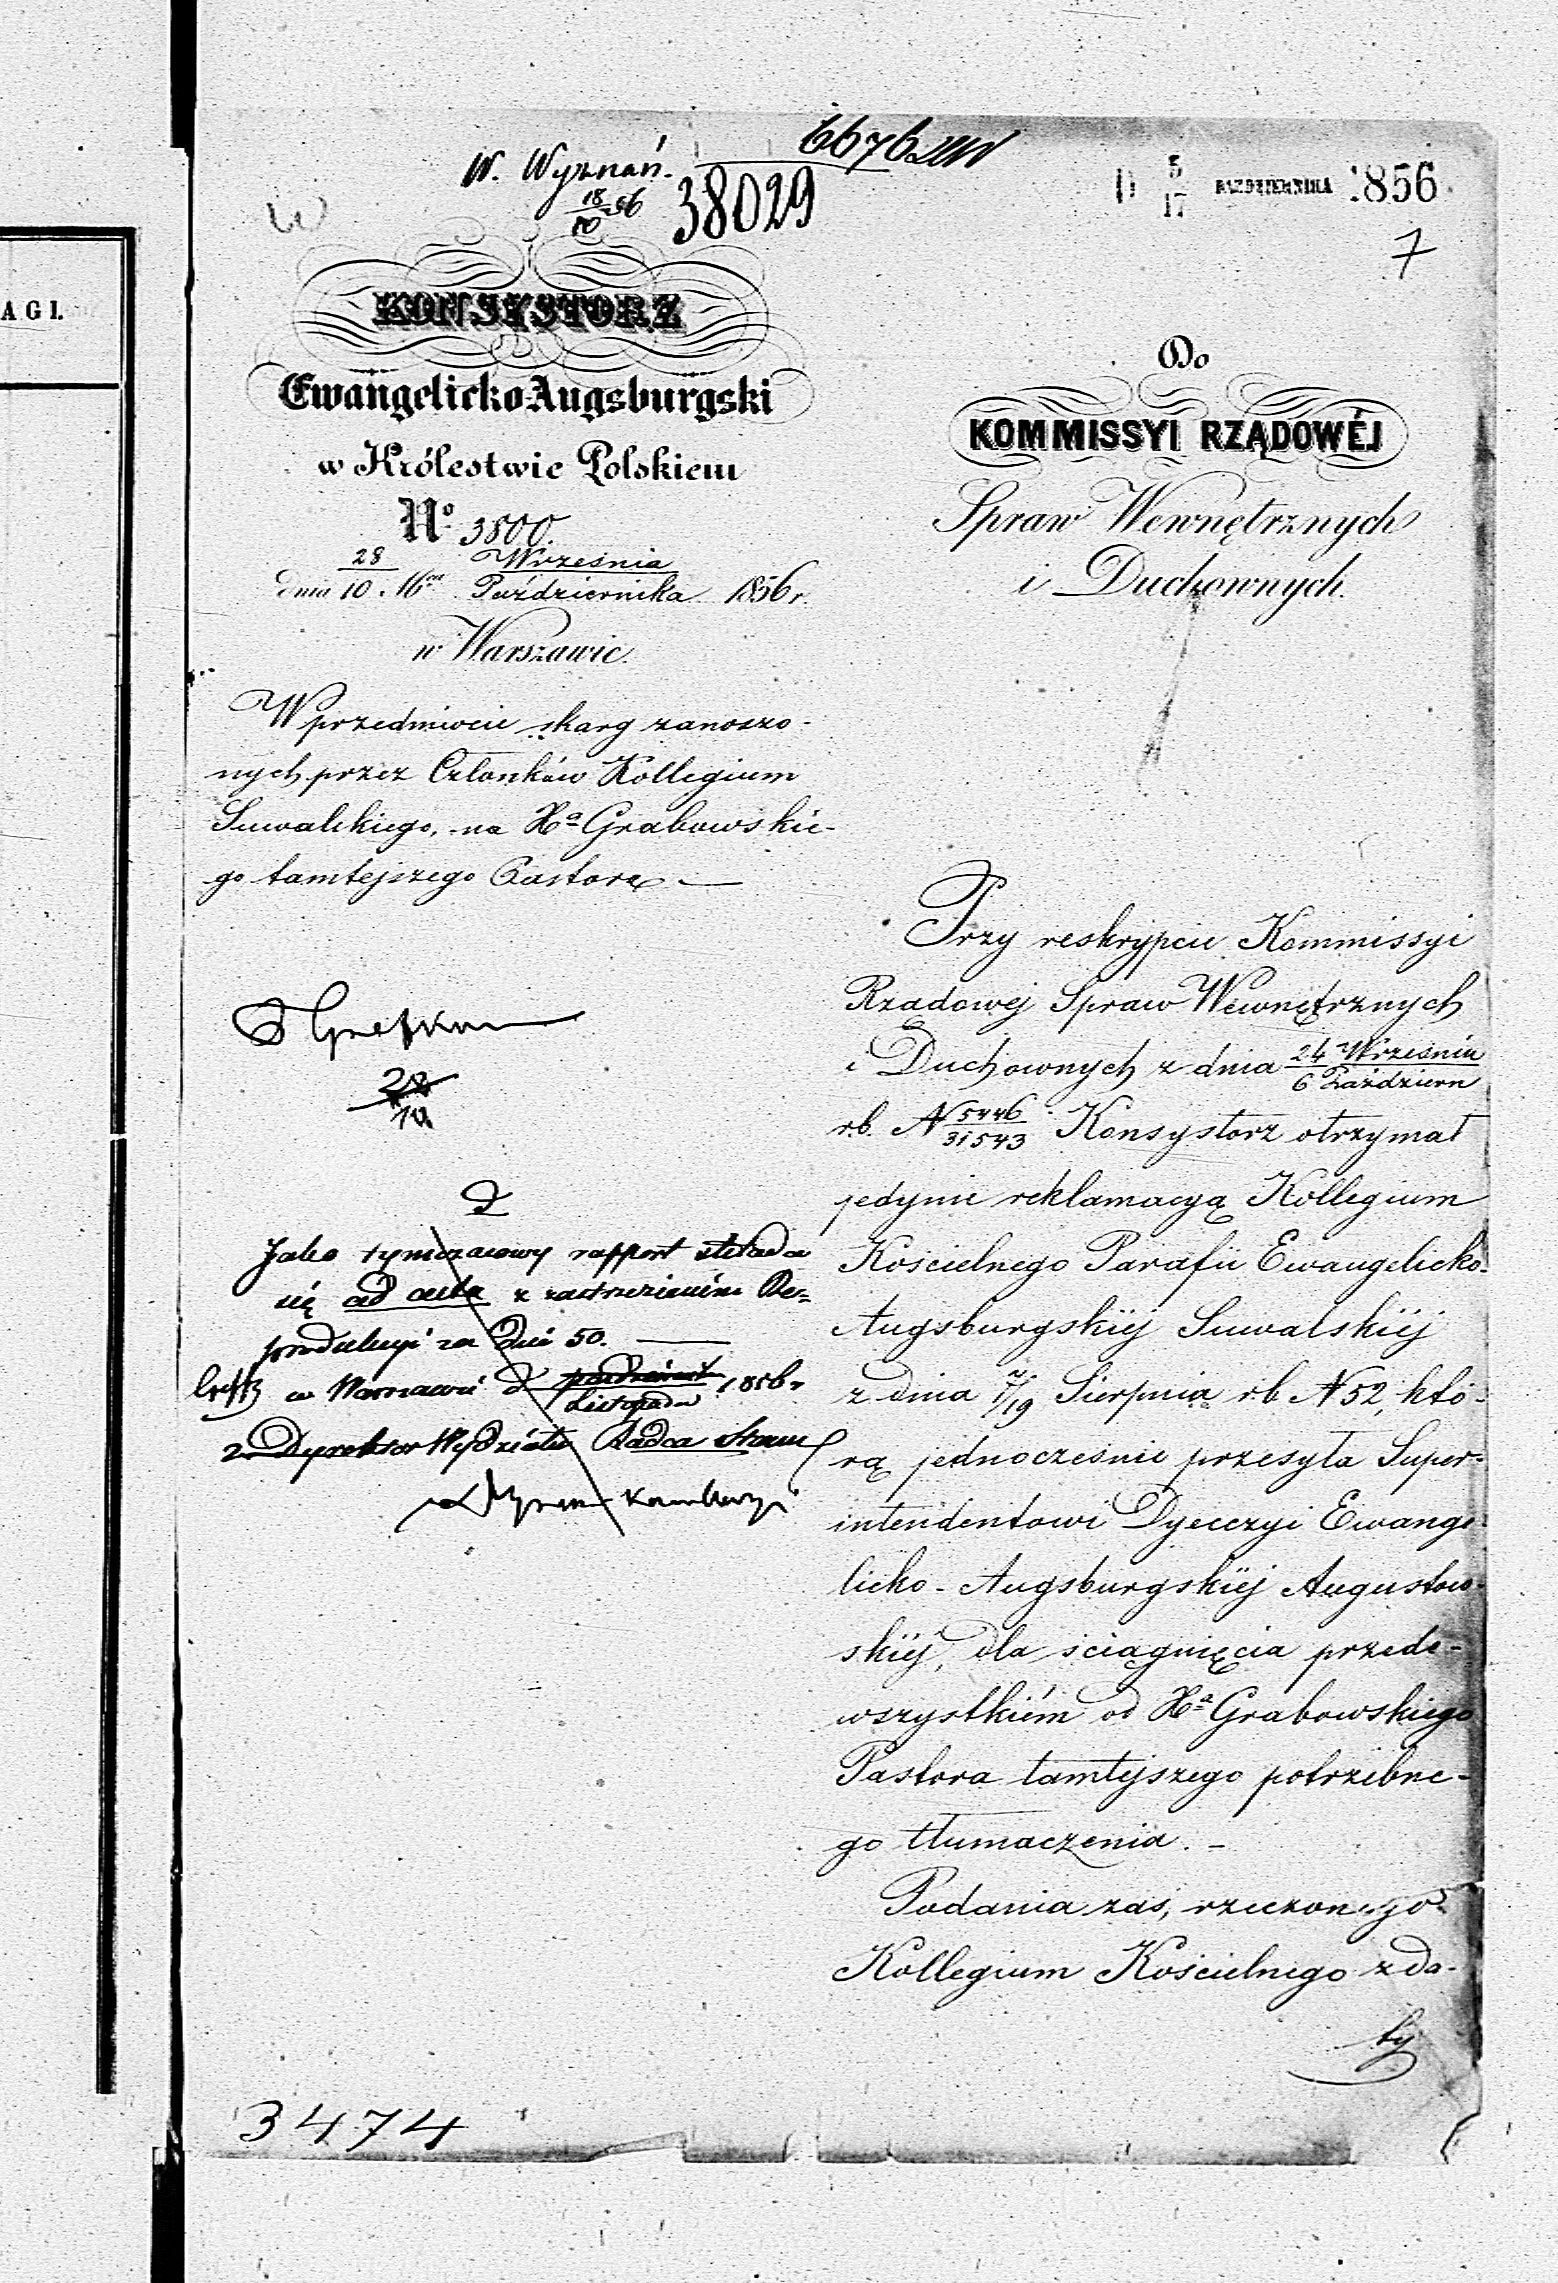 W. Wyznań.
18/10 56
6676
38029
D 5/17 PAŹDZIERNIKA 1856
7
AGI.
KONSYSTORZ
Ewangelicko-Augsburgski
w Królestwie Polskiem
No. 3800.
dnia 28 Września / 10 Października 1856 r.
w Warszawie.
W przedmiocie skarg zanoszo-
nych przez Członków Kollegium
Suwalskiego, na Xa Grabowskie-
go tamtejszego Pastora —
28/10
D
Jako tymczasowy rapport składa
się ad acta z zastrzeżeniem Re-
produkcyi za Dni 50. —
w Warszawie d. Października / Listopada 1856 r
Dyrektor Wydziału Radca Stanu
3474
Do
KOMMISSYI RZĄDOWÉJ
Spraw Wewnętrznych
i Duchownych.
Przy reskrypcie Kommissyi
Rządowej Spraw Wewnętrznych
i Duchownych z dnia 24 Września / 6 Październ
r.b. N 5446/31543 Konsystorz otrzymał
jedynie reklamacyą Kollegium
Kościelnego Parafii Ewangelicko-
Augsburgskiéj Suwalskiéj
z dnia 7/19 Sierpnia r.b. N 52, któ-
rą jednocześnie przesyła Super-
intendentowi Dyecezyi Ewange-
licko-Augsburgskiéj Augustow-
skiéj, dla ściągnięcia przede-
wszystkiém od Xa Grabowskiego
Pastora tamtejszego potrzebne-
go tłumaczenia. -
Podania zaś, rzeczonego
Kollegium Kościelnego z da-
ty